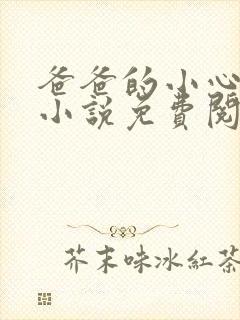 爸爸的小心
小說免費閱
芥末味冰紅茶